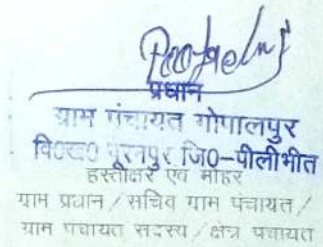 प्रधान
ग्राम पंचायत गोपालपुर
वि०ख० पूरनपुर जि०-पीलीभीत
हस्ताक्षर एवं मोहर
ग्राम प्रधान / सचिव ग्राम पंचायत /
ग्राम पंचायत सदस्य / क्षेत्र पंचायत